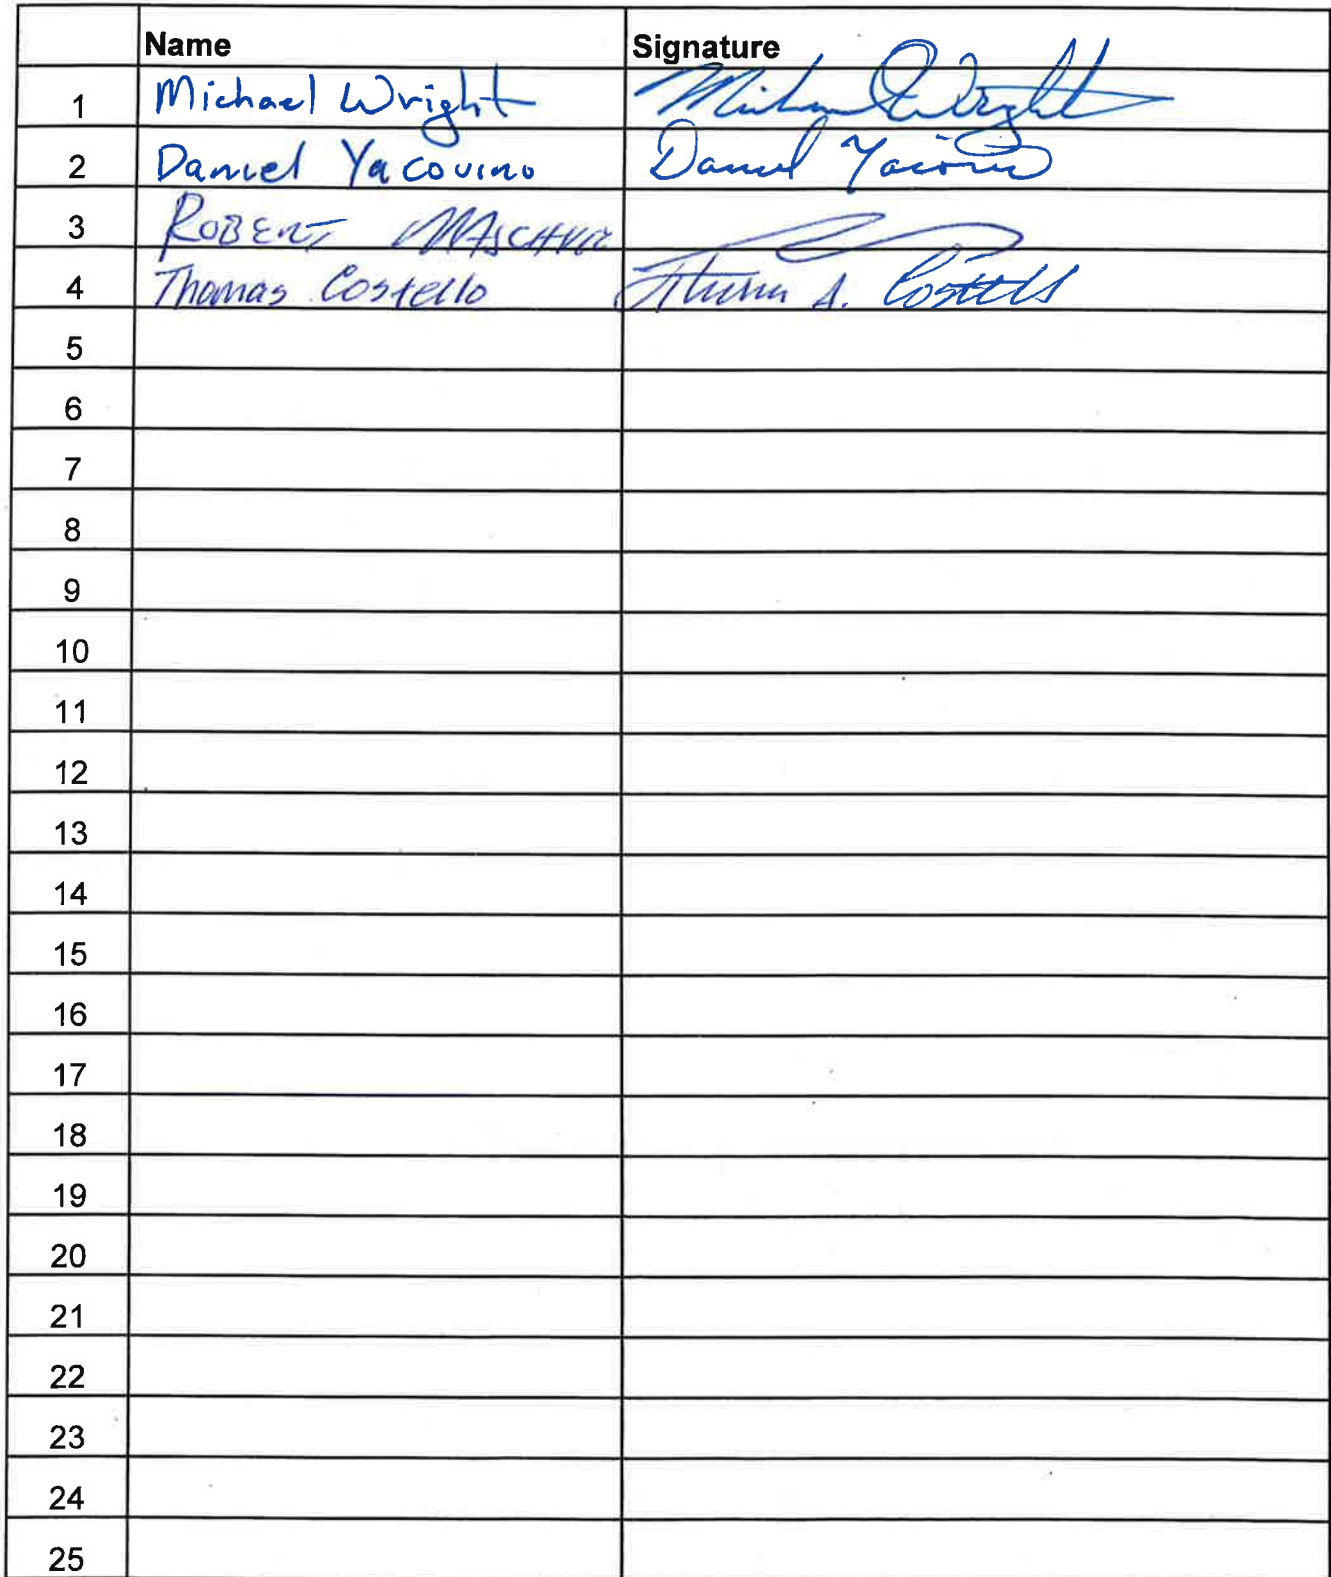 Name Signature
1 Michael Wright Michael Wright
2 Daniel Yacovino Daniel Yacovino
3 ROBERT
4 Thomas Costello Thomas A. Costello
5
6
7
8
9
10
11
12
13
14
15
16
17
18
19
20
21
22
23
24
25